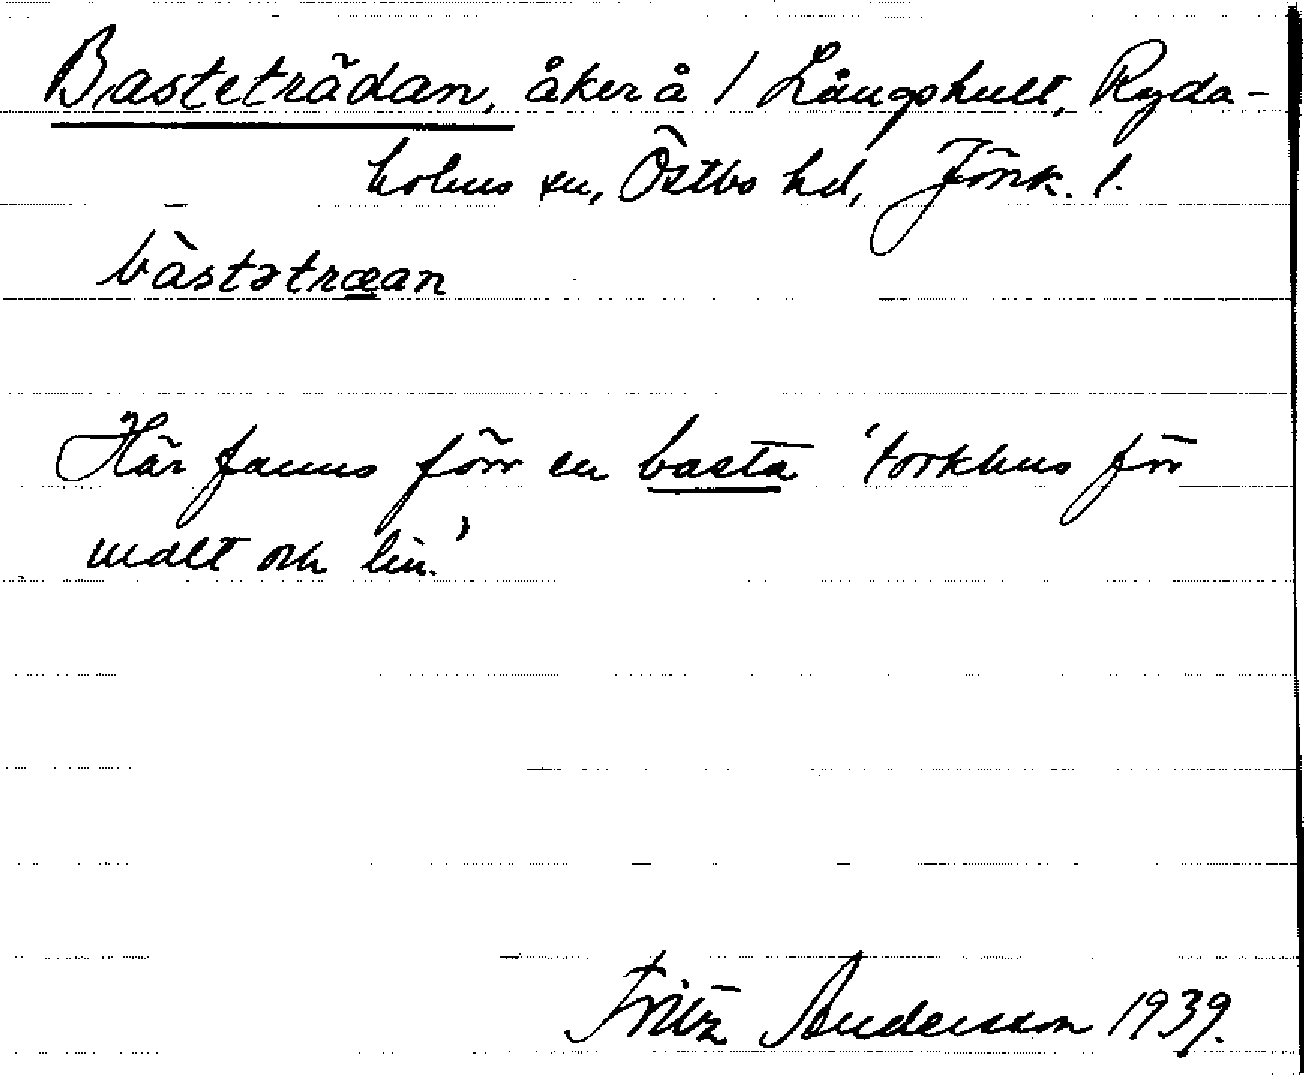 Basteträdan, åker å 1 Långshult, Ryda-
holms sn, Östbo hd, Jönk. l.
bàstətræan
Här fanns förr en basta 'torkhus för
malt och lin.'
Fritz Andersson 1939.